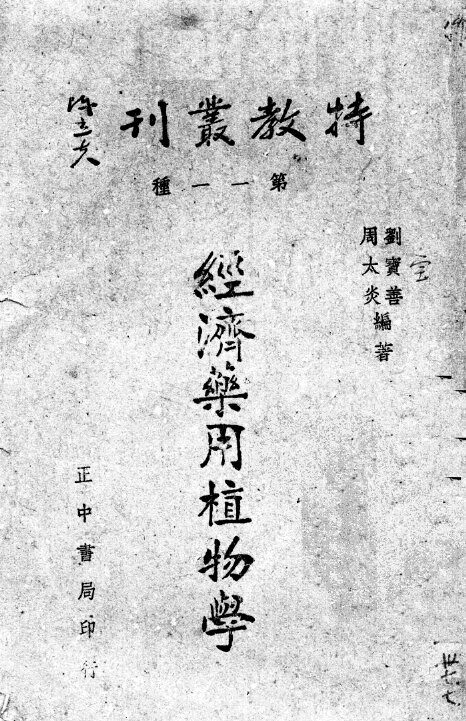 特教叢刊
第一一種
劉寶善
周太炎編著
經濟藥用植物學
正中書局印行